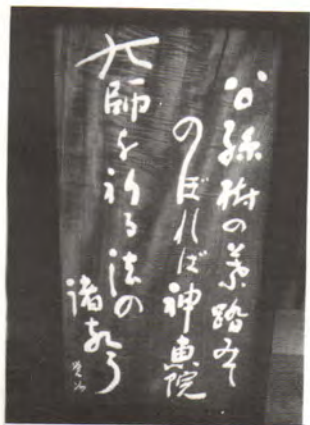 公孫樹の葉踏みて
のぼれば神恵院
大師を祈る法の
諸声